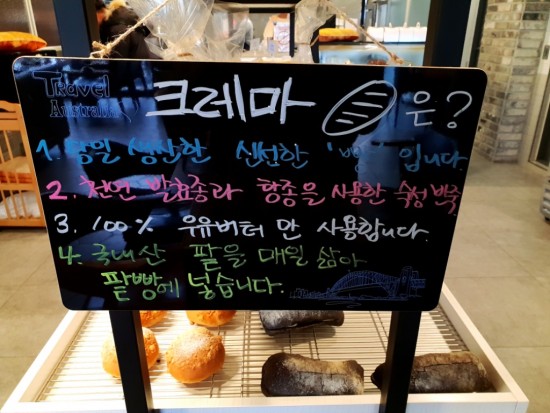 Travel
Australia
크레마 은?
1. 당일 생산한 신선한 '빵' 입니다.
2. 천연 발효종과 탕종을 사용한 숙성 반죽
3. 100% 우유버터 만 사용합니다.
4. 국내산 팥을 매일 삶아
팥빵에 넣습니다.